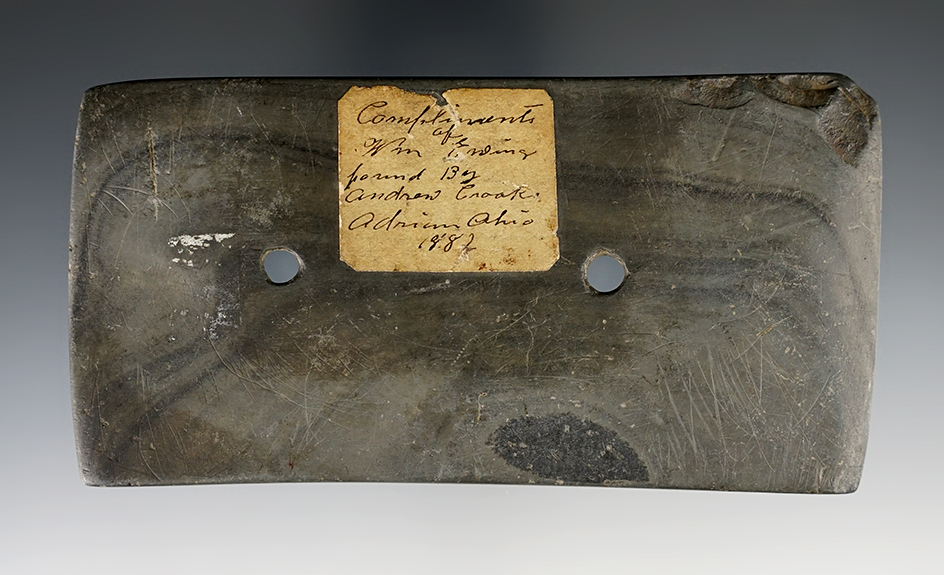 Compliments
of
Wm Ewing
found By
Andrew Crook.
Adrian Ohio
1882